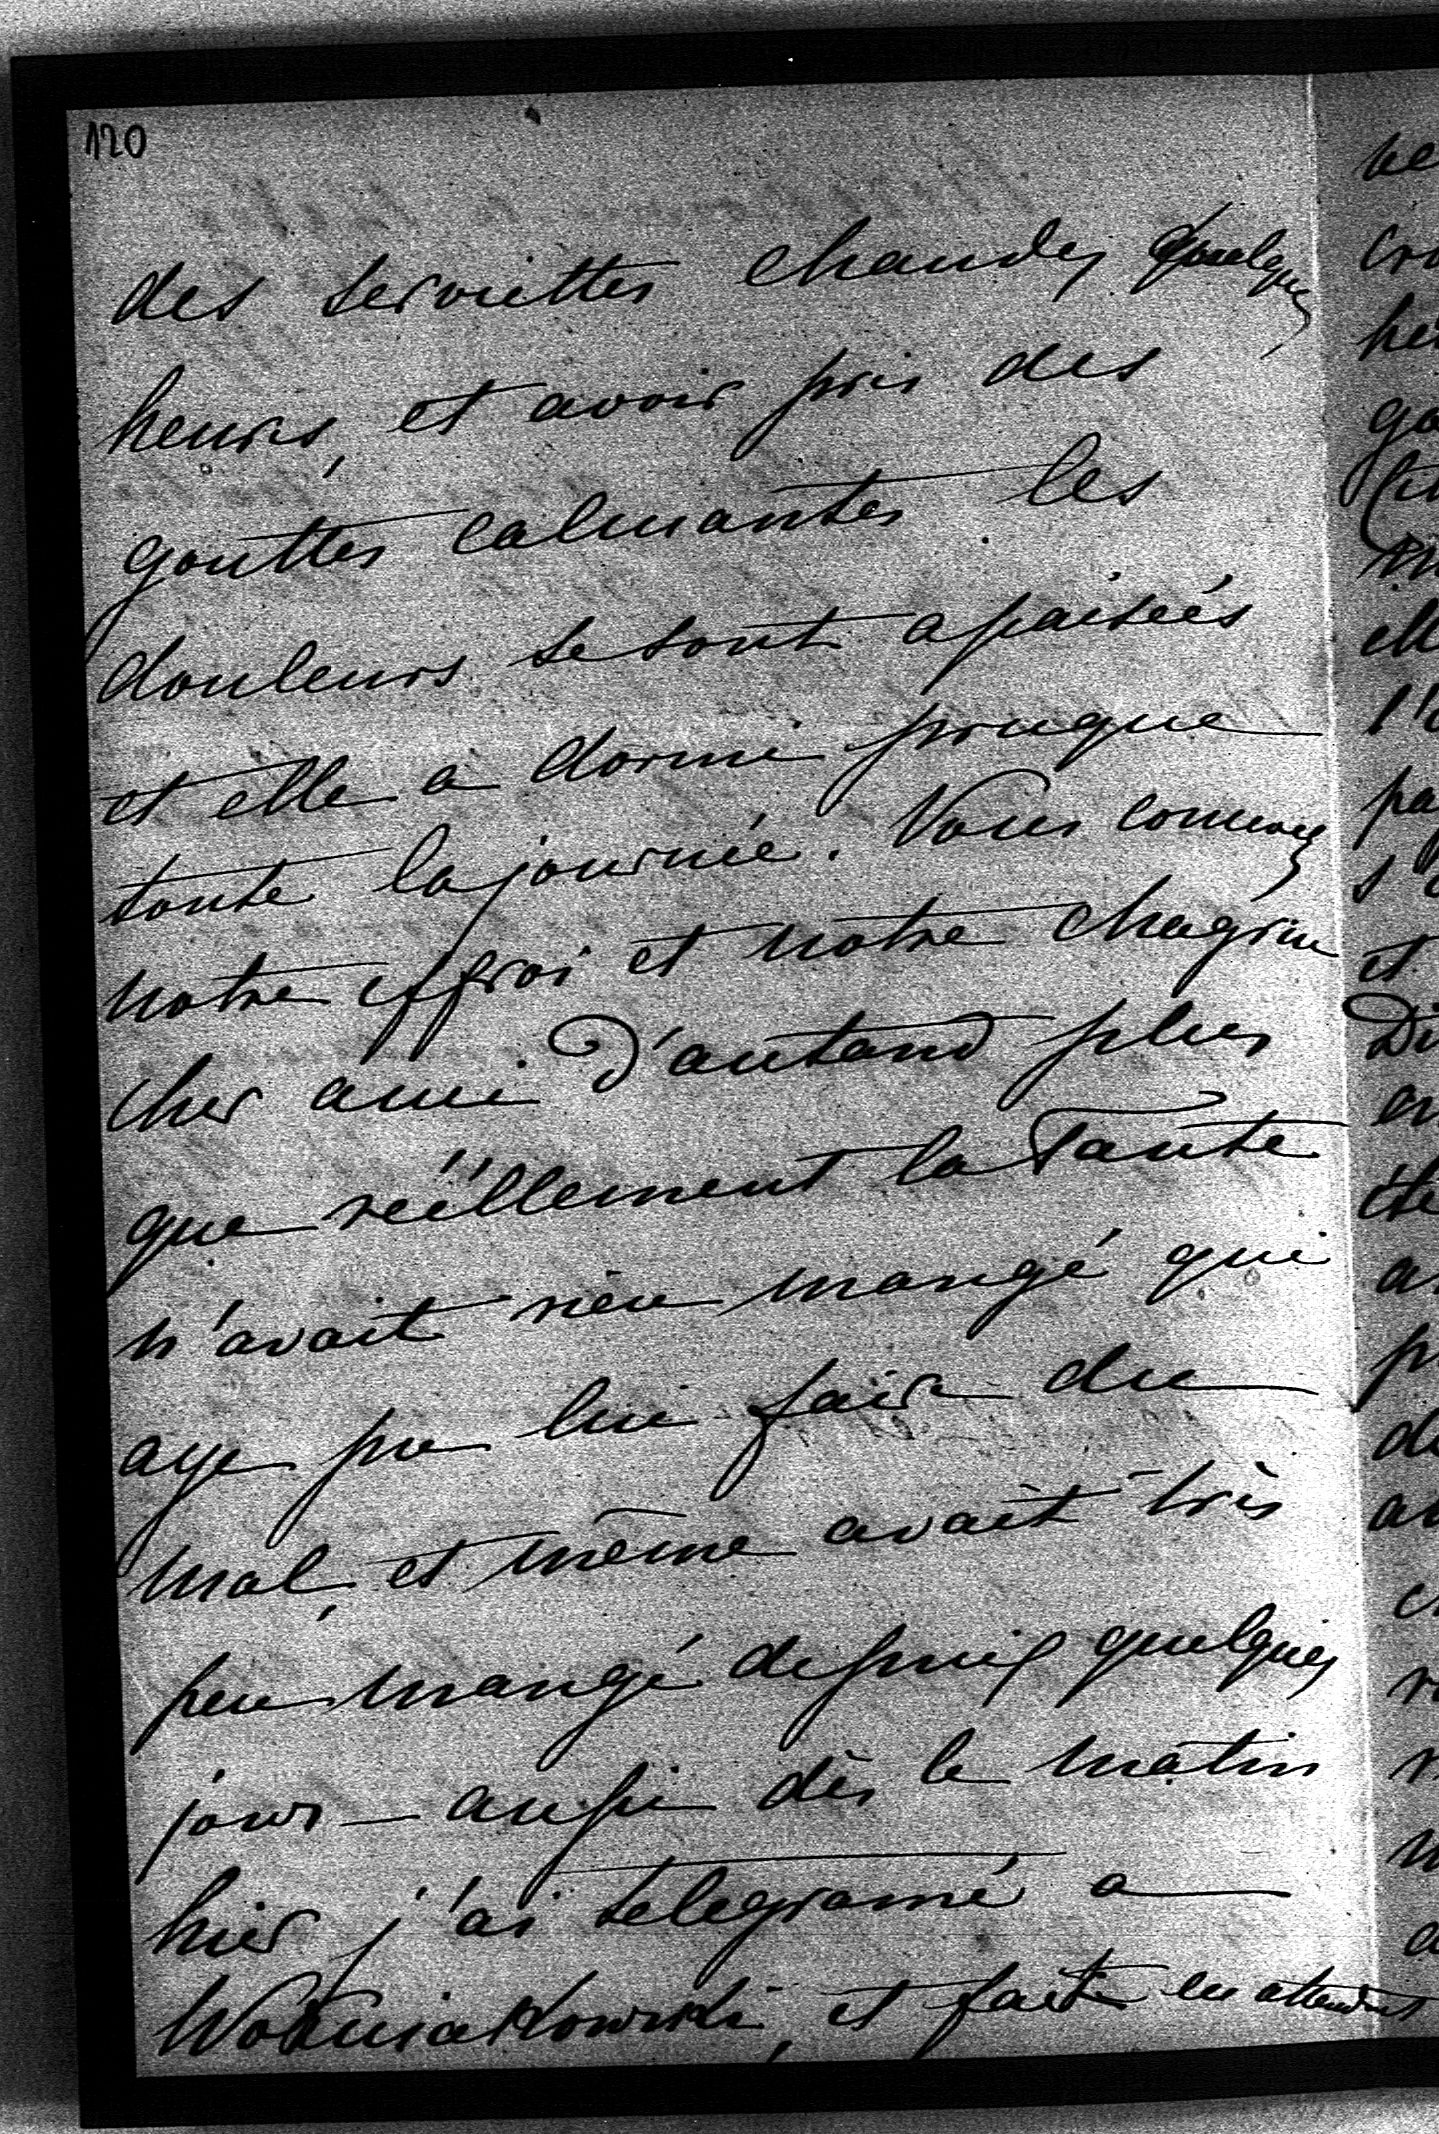 120
des serviettes chaudes quelques
heures, et avoir pris des
gouttes calmantes les
douleurs se sont apaiseés
et elle a dormi presque
toute la journée. Vous concevez
notre effroi et notre chagrin
cher ami. D'autand plus
que reéllement la Tante
n'avait rien mangé qui
aye pu lui fair du
mal, et même avait très
peu mangé depuis quelques
jours — aussi dès le matin
hier j'ai telegramé a
et faite en attendant